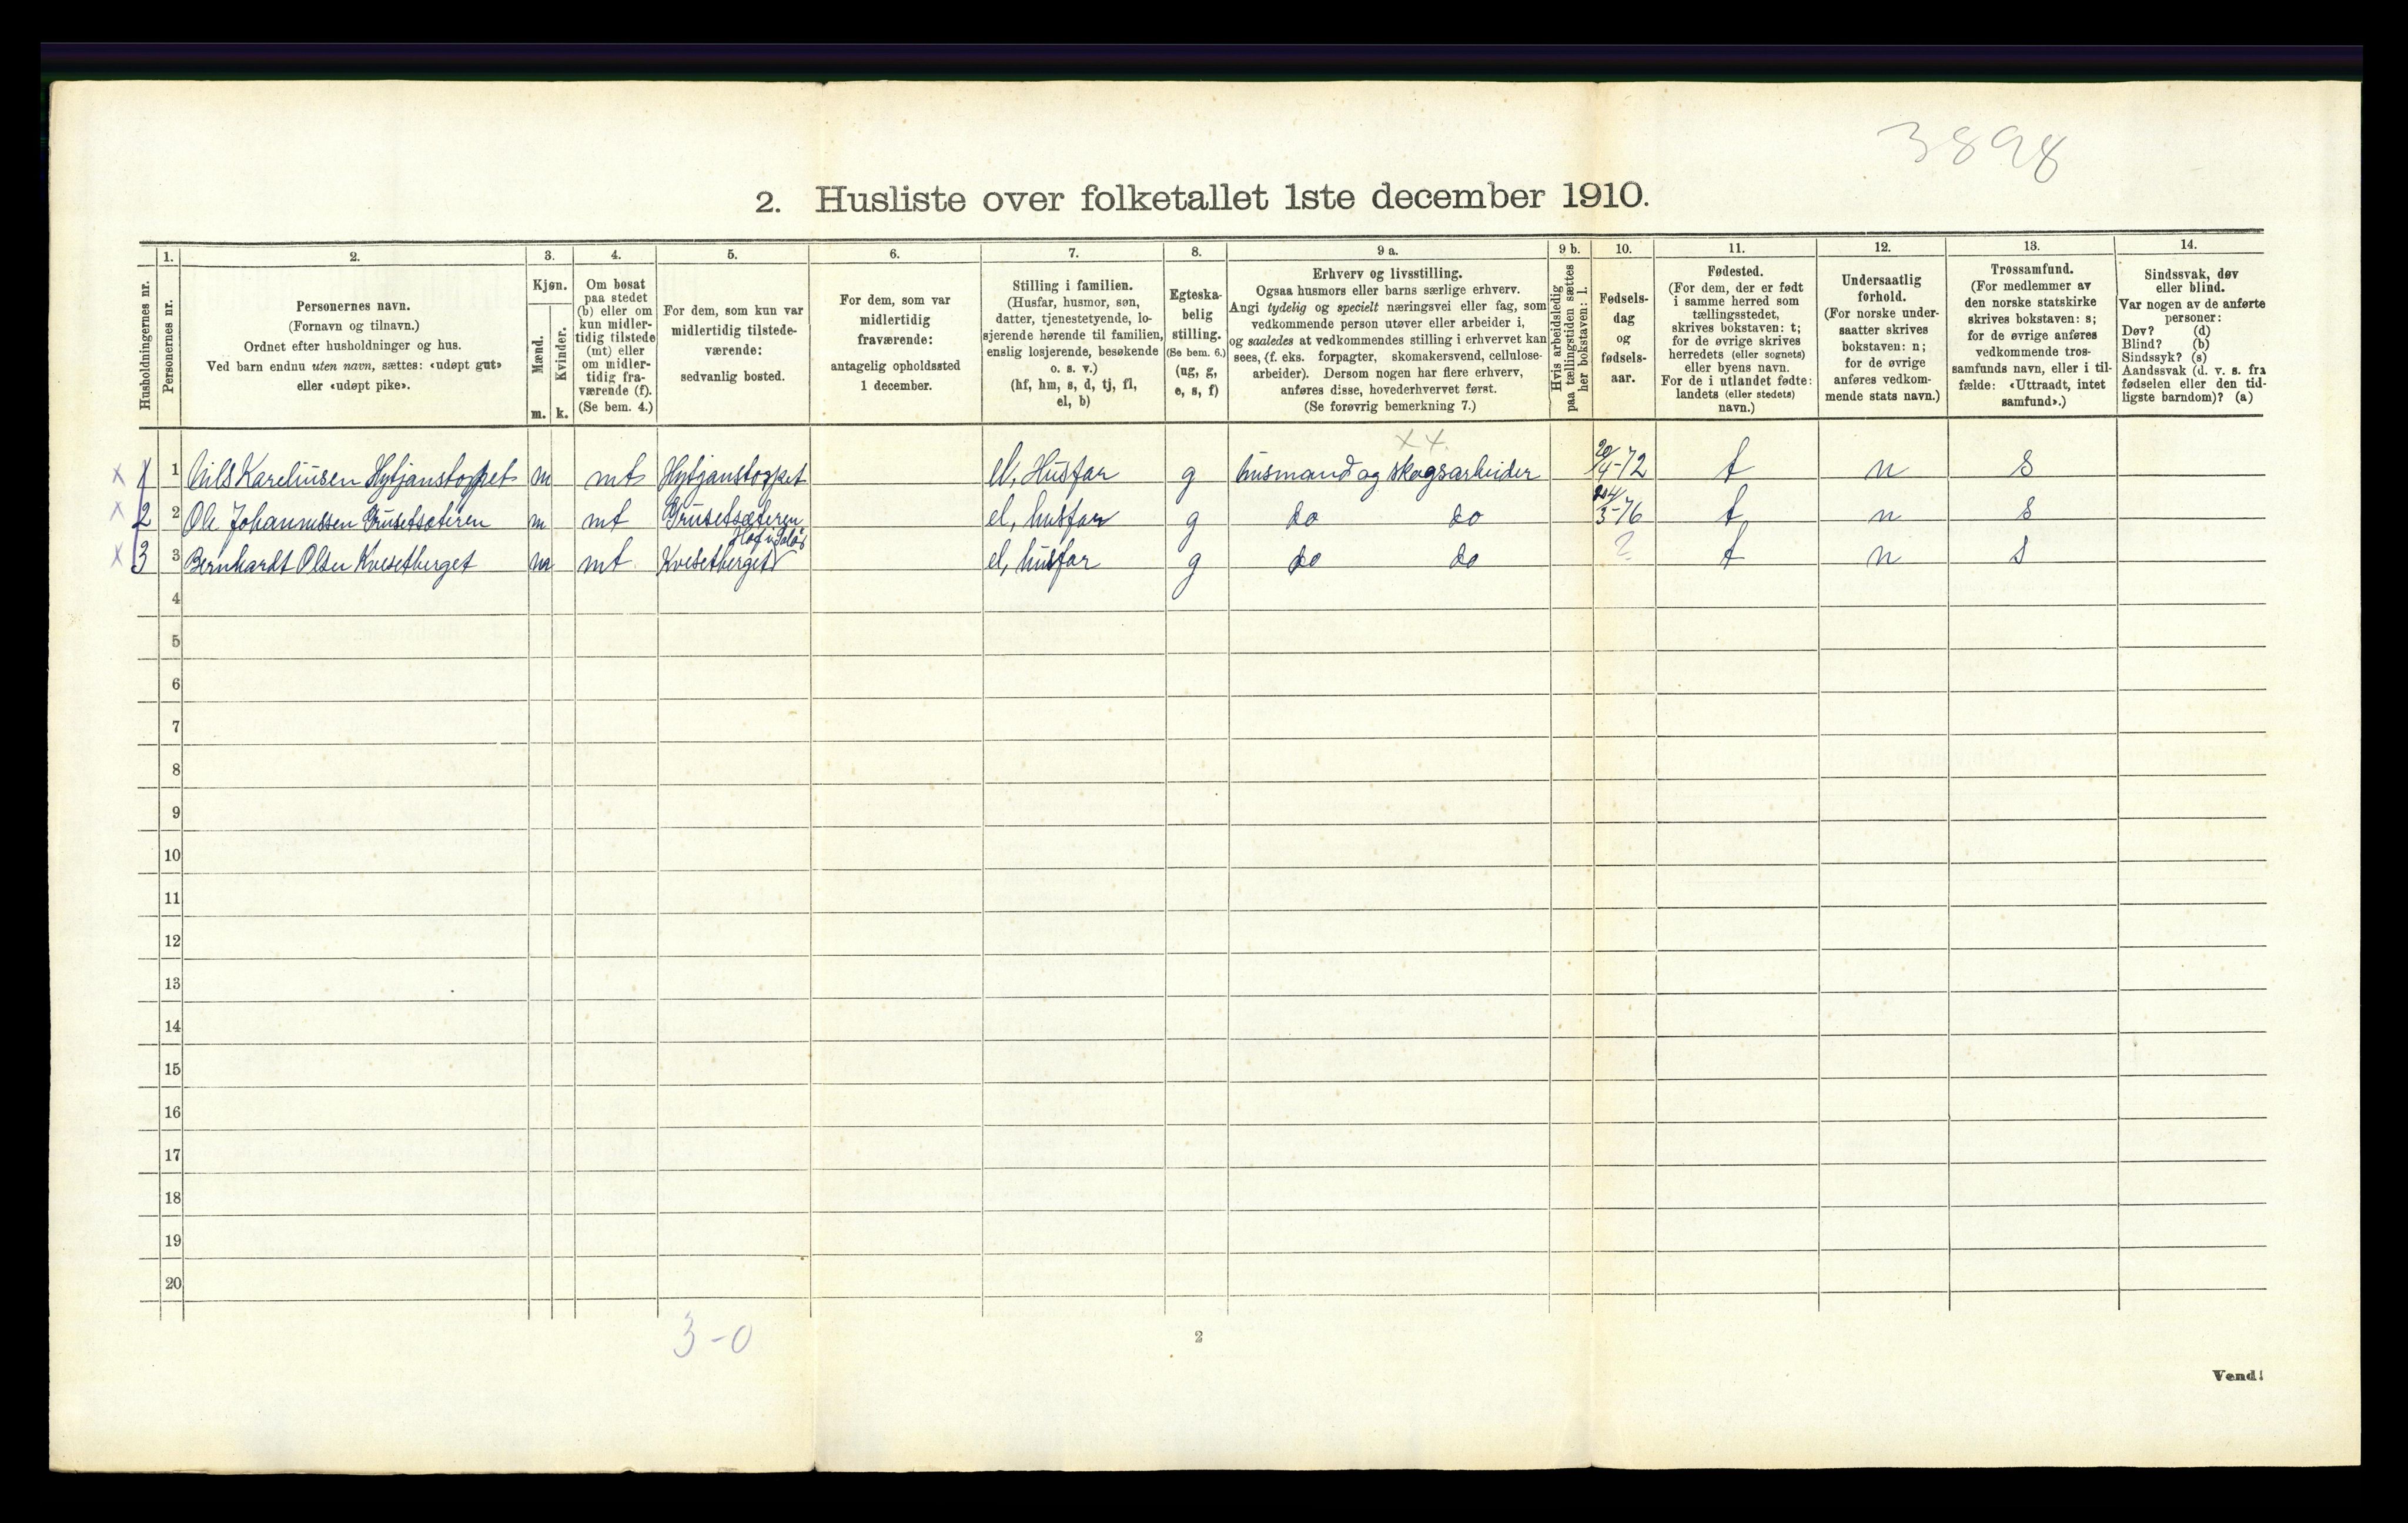 3898
2. Husliste over folketallet 1ste december 1910.
Husholdningernes nr.
1.
Personernes nr.
2.
Personernes navn.
(Fornavn og tilnavn.)
Ordnet efter husholdninger og hus.
Ved barn endnu uten navn, sættes: «udøpt gut»
eller «udøpt pike».
3.
Kjøn.
Mænd.
Kvinder.
m. k.
4.
Om bosat
paa stedet
(b) eller om
kun midler-
tidig tilstede
(mt) eller
om midler-
tidig fra-
værende (f).
(Se bem. 4.)
5.
For dem, som kun var
midlertidig tilstede-
værende:
sedvanlig bosted.
6.
For dem, som var
midlertidig
fraværende:
antagelig opholdssted
1 december.
7.
Stilling i familien.
(Husfar, husmor, søn,
datter, tjenestetyende, lo-
sjerende hørende til familien,
enslig losjerende, besøkende
o. s. v.)
(hf, hm, s, d, tj, fl,
el, b)
8.
Egteska-
belig
stilling.
(Se bem. 6.)
(ug, g,
e, s, f)
9 a.
Erhverv og livsstilling.
Ogsaa husmors eller barns særlige erhverv.
Angi tydelig og specielt næringsvei eller fag, som
vedkommende person utøver eller arbeider i,
og saaledes at vedkommendes stilling i erhvervet kan
sees, (f. eks. forpagter, skomakersvend, cellulose-
arbeider). Dersom nogen har flere erhverv,
anføres disse, hovederhvervet først.
(Se forøvrig bemerkning 7.)
9 b.
Hvis arbeidsledig
paa tællingstiden sættes
her bokstaven: l.
10.
Fødsels-
dag
og
fødsels-
aar.
11.
Fødested.
(For dem, der er født
i samme herred som
tællingsstedet,
skrives bokstaven: t;
for de øvrige skrives
herredets (eller sognets)
eller byens navn.
For de i utlandet fødte:
landets (eller stedets)
navn.)
12.
Undersaatlig
forhold.
(For norske under-
saatter skrives
bokstaven: n;
for de øvrige
anføres vedkom-
mende stats navn.)
13.
Trossamfund.
(For medlemmer av
den norske statskirke
skrives bokstaven: s;
for de øvrige anføres
vedkommende tros-
samfunds navn, eller i til-
fælde: «Uttraadt, intet
samfund».)
14.
Sindssvak, døv
eller blind.
Var nogen av de anførte
personer:
Døv? (d)
Blind? (b)
Sindssyk? (s)
Aandssvak (d. v. s. fra
fødselen eller den tid-
ligste barndom)? (a)
x x.
x 1 1 Nils Kareliusen Hytjanstorpet m mt Hytjanstorpet el, Husfar g husmand og skogsarbeider 20/4-72 t n s
x 2 2 Ole Johannessen Grusetsæteren m mt Grusetsæteren el, husfar g do do 3-76 t n s
Hof i Solør
x 3 3 Bernhardt Olsen Kvesetberget m mt Kvesetberget el, husfar g do do ? t n s
4
5
6
7
8
9
10
11
12
13
14
15
16
17
18
19
20
3-0
2
Vend!